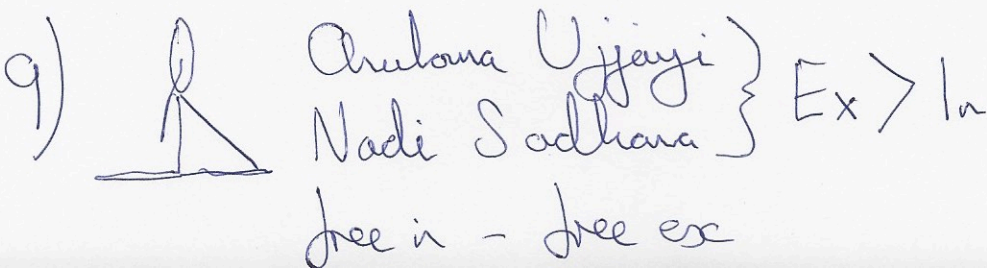 9) Anuloma Ujjayi } Ex > In
Nadi Sodhana
free in - free ex